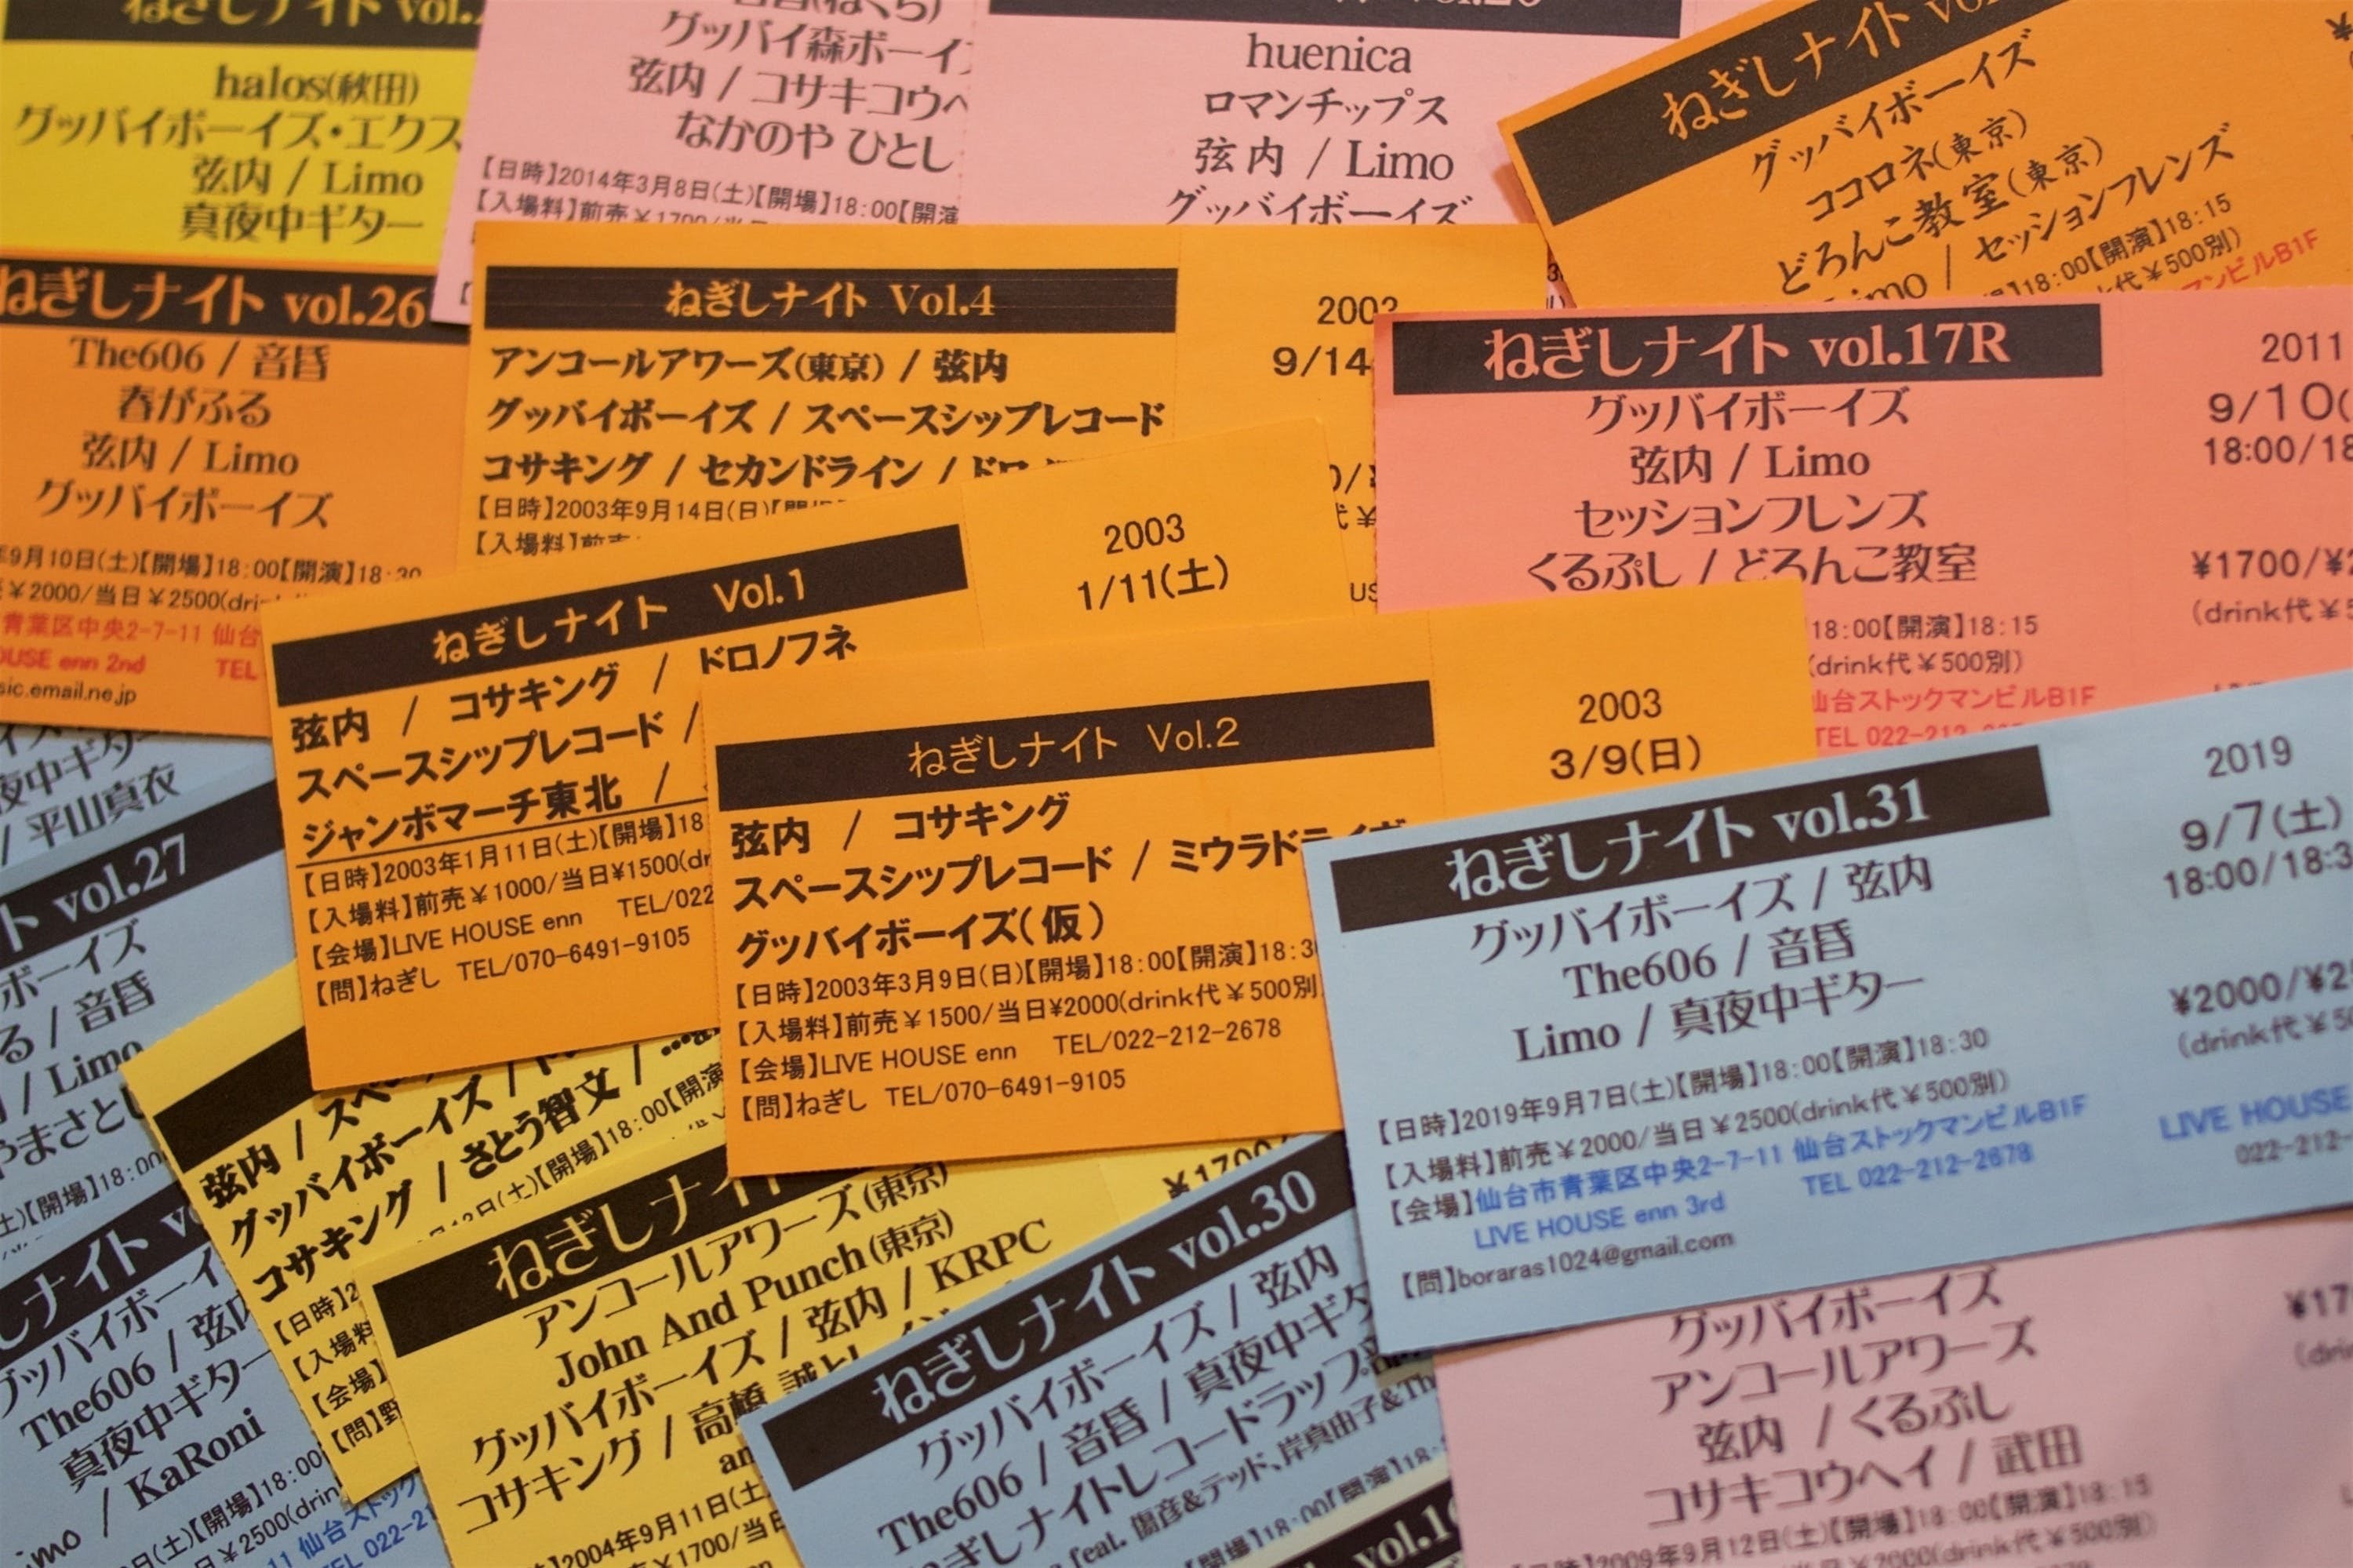 ねぎしナイト
halos(秋田)
グッバイボーイズ・エクス
弦内 / Limo
真夜中ギター
グッバイ森ボーイ
弦内 / コサキコウヘ
なかのや ひとし
【日時】2014年3月8日(土)【開場】18:00【開演
【入場料】前売￥1700/当日
huenica
ロマンチップス
弦内 / Limo
グッバイボーイズ
ねぎしナイト
グッバイボーイズ
ココロネ(東京)
どろんこ教室(東京)
Limo / セッションフレンズ
18:00【開演】18:15
代￥500別)
マンビルB1F
ねぎしナイト vol.26
The606 / 音昏
春がふる
弦内 / Limo
グッバイボーイズ
年9月10日(土)【開場】18:00【開演】18:30
￥2000/当日￥2500(drin
青葉区中央2-7-11 仙台
OUSE enn 2nd TEL
sic.email.ne.jp
ねぎしナイト Vol.4
アンコールアワーズ(東京) / 弦内
グッバイボーイズ / スペースシップレコード
コサキング / セカンドライン / ドロ
【日時】2003年9月14日(日)【開
【入場料】前売
2003
9/14
ねぎしナイト vol.17R
グッバイボーイズ
弦内 / Limo
セッションフレンズ
くるぷし / どろんこ教室
18:00【開演】18:15
(drink代￥500別)
仙台ストックマンビルB1F
TEL 022-212
2011
9/10(
18:00/18
¥1700/¥2
(drink代￥5
ねぎしナイト Vol.1
弦内 / コサキング / ドロノフネ
スペースシップレコード /
ジャンボマーチ東北 /
【日時】2003年1月11日(土)【開場】18
【入場料】前売￥1000/当日¥1500(dr
【会場】LIVE HOUSE enn TEL/022
【問】ねぎし TEL/070-6491-9105
2003
1/11(土)
ねぎしナイト Vol.2
弦内 / コサキング
スペースシップレコード / ミウラドライブ
グッバイボーイズ(仮)
【日時】2003年3月9日(日)【開場】18:00【開演】18:3
【入場料】前売￥1500/当日¥2000(drink代￥500別
【会場】LIVE HOUSE enn TEL/022-212-2678
【問】ねぎし TEL/070-6491-9105
2003
3/9(日)
ねぎしナイト vol.31
グッバイボーイズ / 弦内
The606 / 音昏
Limo / 真夜中ギター
【日時】2019年9月7日(土)【開場】18:00【開演】18:30
【入場料】前売￥2000/当日￥2500(drink代￥500別)
【会場】仙台市青葉区中央2-7-11 仙台ストックマンビルB1F
LIVE HOUSE enn 3rd TEL 022-212-2678
【問】boraras1024@gmail.com
2019
9/7(土)
18:00/18:3
¥2000/¥25
(drink代￥50
LIVE HOUSE
022-212-
夜中ギター
/ 平山真衣
ト vol.27
ボーイズ
る / 音昏
/ Limo
やまさとし
土)【開場】18:00
弦内 / スペ
グッバイボーイズ /
コサキング / さとう智文 /
(土)【開場】18:00【開演
【日時】2
【入場料
【会場】
【問】野
しナイト
グッバイボーイ
The606 / 弦内
真夜中ギター
/ KaRoni
(土)【開場】18:00
￥2500(drin
11 仙台ストック
TEL 022-21
ねぎしナイト
アンコールアワーズ(東京)
John And Punch(東京)
グッバイボーイズ / 弦内 / KRPC
コサキング / 高橋 誠
2004年9月11日(土
￥1700/当日
¥1700/
ねぎしナイト vol.30
グッバイボーイズ / 弦内
The606 / 音昏 / 真夜中ギタ
ねぎしナイトレコードラップ部
feat.
【開場】18:00【開演】18:
グッバイボーイズ
アンコールアワーズ
弦内 / くるぷし
コサキコウヘイ / 武田
2009年9月12日(土)【開場】18:00【開演】18:15
(drink代￥500別)
¥17
(drin